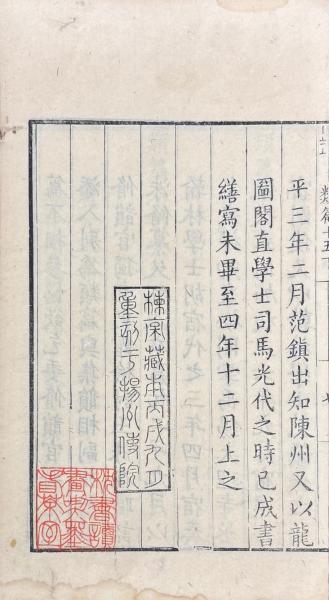 類篇十五下
平三年二月范鎮出知陳州又以龍
圖閣直學士司馬光代之時已成書
繕寫未畢至四年十二月上之
楝亭藏本丙戌九月
重刻于揚州使院